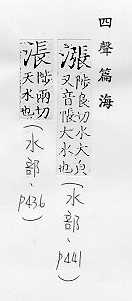 四聲篇海
漲陟良切水大皃
又音悵大水也(水部、p441)
漲陟兩切
大水也(水部、p436)